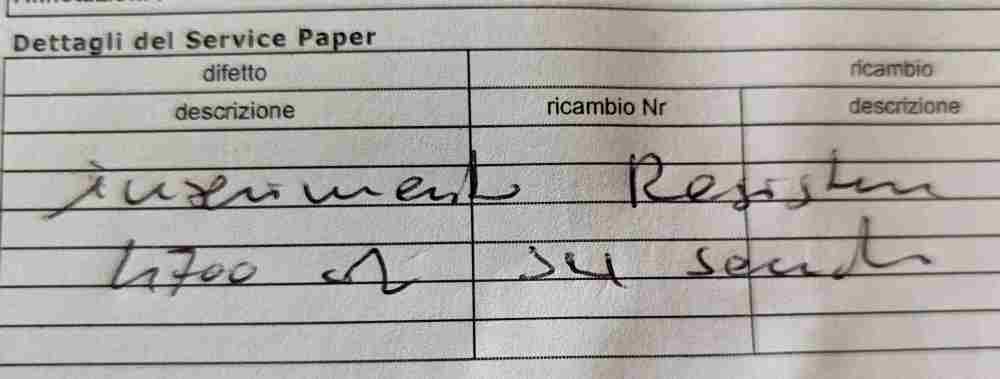 Dettagli del Service Paper
difetto ricambio
descrizione ricambio Nr descrizione
inserimento Resistenza
4700 Ω su sonda